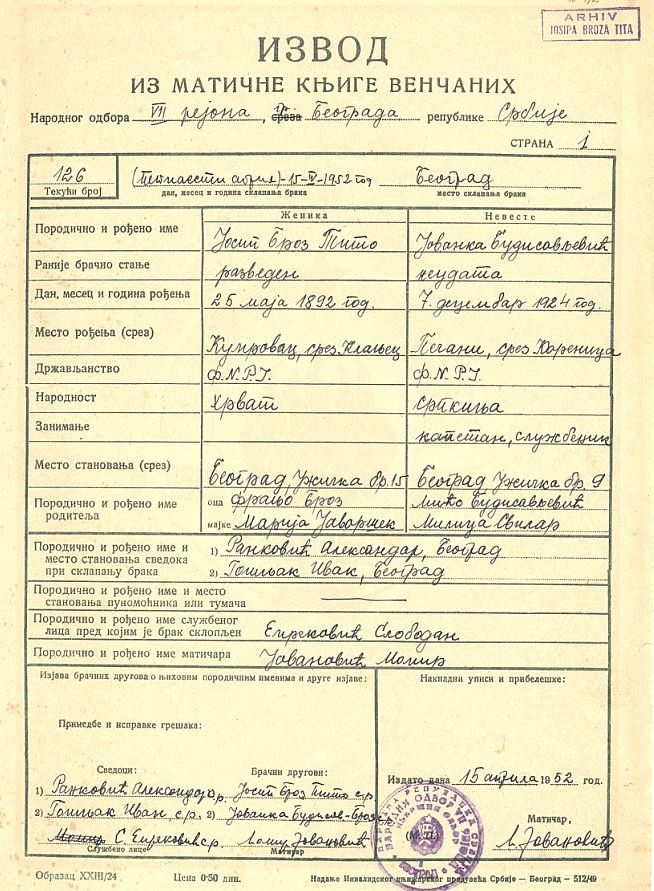 ARHIV
JOSIPA BROZA TITA
ИЗВОД
ИЗ МАТИЧНЕ КЊИГЕ ВЕНЧАНИХ
Народног одбора VII рејона, гр. среза Београда републике Србије
СТРАНА 1
126 (Петнаести април)-15-IV-1952 год Београд
Текући број дан, месец и година склапања брака место склапања брака
Женика Невесте
Породично и рођено име Јосип Броз Тито Јованка Будисављевић
Раније брачно стање разведен неудата
Дан, месец и година рођења 25 маја 1892 год. 7. децембар 1924 год.
Место рођења (срез) Кумровац, срез Клањец Пећани, срез Кореница
Држављанство Ф.Н.Р.Ј. Ф.Н.Р.Ј.
Народност Хрват Српкиња
Занимање капетан, службеник
Место становања (срез) Београд, Ужичка бр. 15 Београд Ужичка бр. 9
Породично и рођено име родитеља оца Фрањо Броз Мићо Будисављевић
мајке Марија Јаворшек Милица Свилар
Породично и рођено име и место становања сведока при склапању брака 1) Ранковић Александар, Београд
2) Гошњак Иван, Београд
Породично и рођено име и место становања пуномоћника или тумача
Породично и рођено име службеног лица пред којим је брак склопљен Слободан
Породично и рођено име матичара Јовановић
Изјава брачних другова о њиховим породичним именима и друге изјаве: Накнадни уписи и прибелешке:
Примедбе и исправке грешака:
Сведоци: Брачни другови:
1) Ранковић Александар с.р. Јосип Броз Тито с.р.
2) Гошњак Иван, с.р. 2) Јованка Будисав-Броз
С. с.р. Јовановић
Службено лице Матичар
Издато дана 15 априла 1952 год.
(М. П.) Матичар,
Јовановић
БЕОГРАД
Образац XXIII/24 Цена 0·50 дин. Издање Инвалидског књижарског предузећа Србије – Београд – 512/49